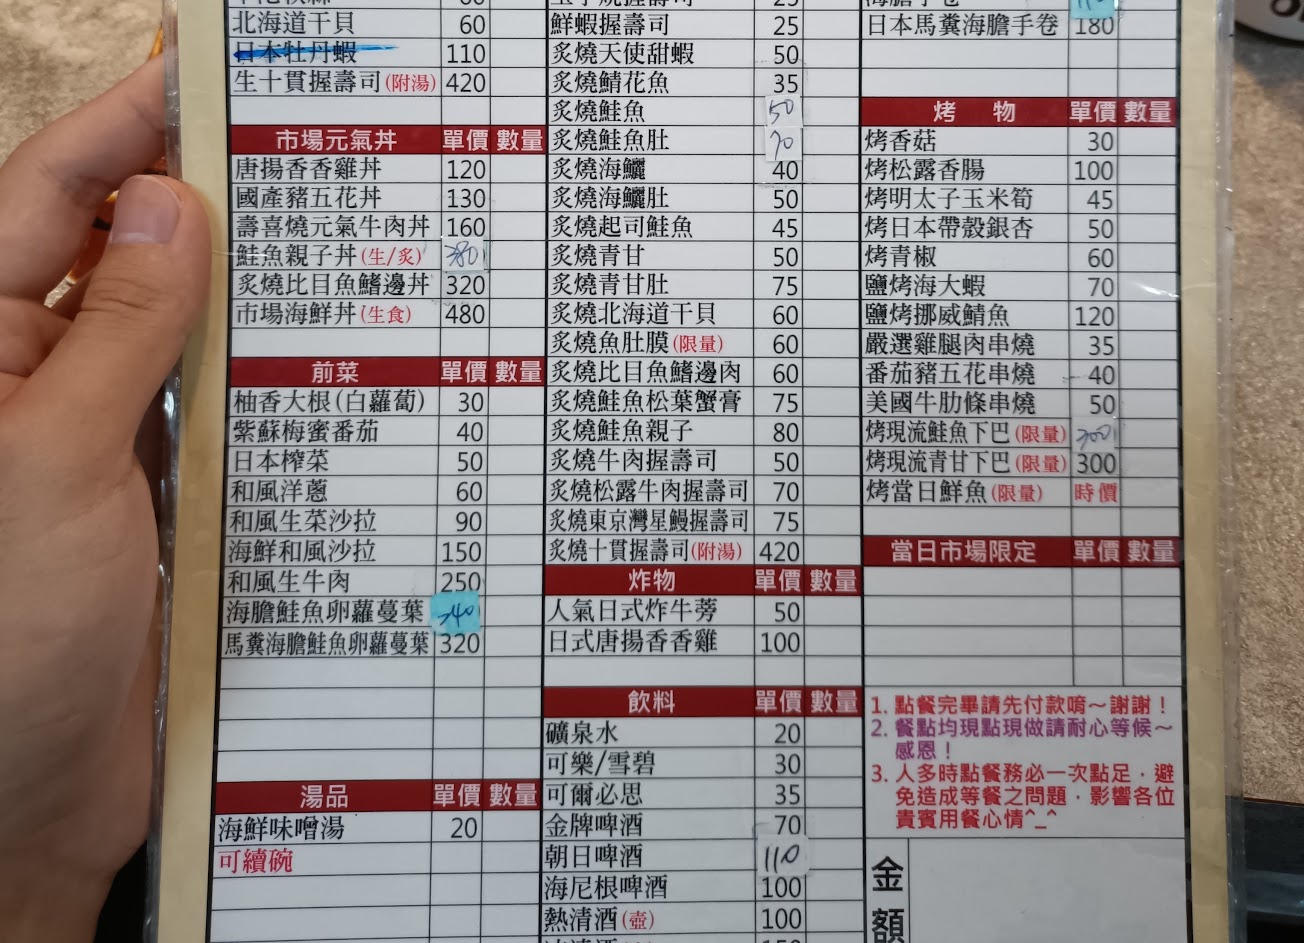 北海道干貝 60
日本牡丹蝦 110
生十貫握壽司(附湯) 420
市場元氣丼 單價 數量
唐揚香香雞丼 120
國產豬五花丼 130
壽喜燒元氣牛肉丼 160
鮭魚親子丼(生/炙) 380
炙燒比目魚鰭邊丼 320
市場海鮮丼(生食) 480
前菜 單價 數量
柚香大根(白蘿蔔) 30
紫蘇梅蜜番茄 40
日本榨菜 50
和風洋蔥 60
和風生菜沙拉 90
海鮮和風沙拉 150
和風生牛肉 250
海膽鮭魚卵蘿蔓葉 240
馬糞海膽鮭魚卵蘿蔓葉 320
湯品 單價 數量
海鮮味噌湯 20
可續碗
鮮蝦握壽司 25
炙燒天使甜蝦 50
炙燒鯖花魚 35
炙燒鮭魚 50
炙燒鮭魚肚 70
炙燒海鱺 40
炙燒海鱺肚 50
炙燒起司鮭魚 45
炙燒青甘 50
炙燒青甘肚 75
炙燒北海道干貝 60
炙燒魚肚膜(限量) 60
炙燒比目魚鰭邊肉 60
炙燒鮭魚松葉蟹膏 75
炙燒鮭魚親子 80
炙燒牛肉握壽司 50
炙燒松露牛肉握壽司 70
炙燒東京灣星鰻握壽司 75
炙燒十貫握壽司(附湯) 420
炸物 單價 數量
人氣日式炸牛蒡 50
日式唐揚香香雞 100
飲料 單價 數量
礦泉水 20
可樂/雪碧 30
可爾必思 35
金牌啤酒 70
朝日啤酒 110
海尼根啤酒 100
熱清酒(壺) 100
日本馬糞海膽手卷 180
烤物 單價 數量
烤香菇 30
烤松露香腸 100
烤明太子玉米筍 45
烤日本帶殼銀杏 50
烤青椒 60
鹽烤海大蝦 70
鹽烤挪威鯖魚 120
嚴選雞腿肉串燒 35
番茄豬五花串燒 40
美國牛肋條串燒 50
烤現流鮭魚下巴(限量)
烤現流青甘下巴(限量) 300
烤當日鮮魚(限量) 時價
當日市場限定 單價 數量
1. 點餐完畢請先付款唷～謝謝！
2. 餐點均現點現做請耐心等候～
感恩！
3. 人多時點餐務必一次點足，避
免造成等餐之問題，影響各位
貴賓用餐心情^_^
金
額